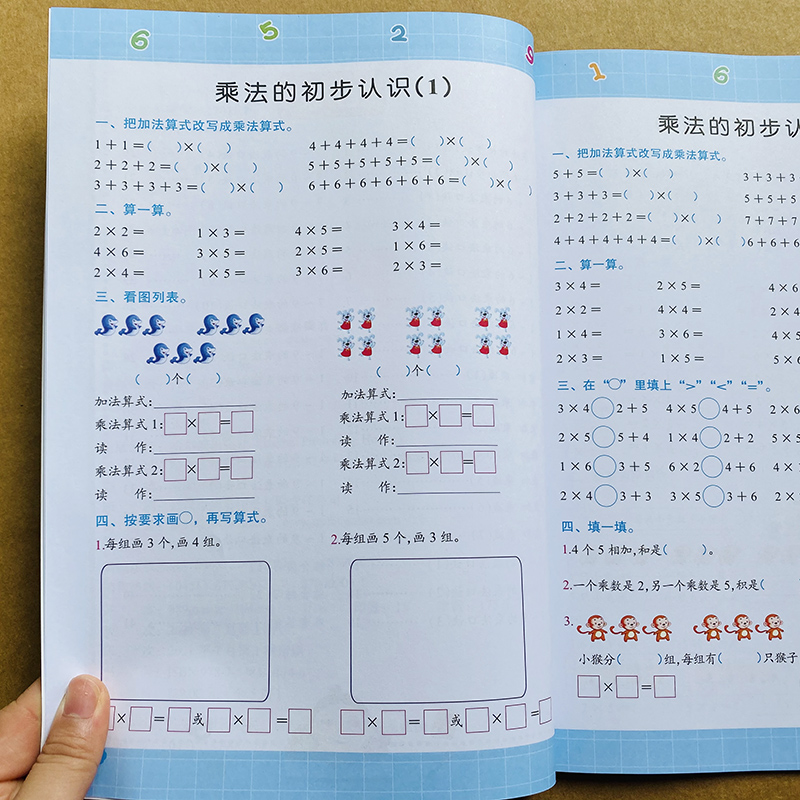 6 5 2
乘法的初步认识(1)
一、把加法算式改写成乘法算式。
1+1=( )×( ) 4+4+4+4=( )×( )
2+2+2=( )×( ) 5+5+5+5+5=( )×( )
3+3+3+3=( )×( ) 6+6+6+6+6+6=( )×( )
二、算一算。
2×2= 1×3= 4×5= 3×4=
4×6= 3×5= 2×5= 1×6=
2×4= 1×5= 3×6= 2×3=
三、看图列表。
( )个( ) ( )个( )
加法算式: 加法算式:
乘法算式1:□×□=□ 乘法算式1:□×□=□
读 作: 读 作:
乘法算式2:□×□=□ 乘法算式2:□×□=□
读 作: 读 作:
四、按要求画○,再写算式。
1.每组画3个,画4组。 2.每组画5个,画3组。
□×□=□或□×□=□ □×□=□或□×□=□
1 6
乘法的初步认
一、把加法算式改写成乘法算式。
5+5=( )×( ) 3+3+3
3+3+3=( )×( ) 5+5+5
2+2+2+2=( )×( ) 7+7+7
4+4+4+4+4=( )×( ) 6+6+6
二、算一算。
3×4= 2×5= 4×6
2×2= 4×4= 2×4
1×4= 3×6= 4×5
2×3= 1×5= 5×6
三、在“○”里填上“>”“<”“=”。
3×4○2+5 4×5○4+5 2×6
2×5○5+4 1×4○2+2 5×5
1×6○3+5 6×2○4+6 4×
2×4○3+3 3×5○3+6 2×
四、填一填。
1.4个5相加,和是( )。
2.一个乘数是2,另一个乘数是5,积是(
3.
小猴分( )组,每组有( )只猴子
□×□=□